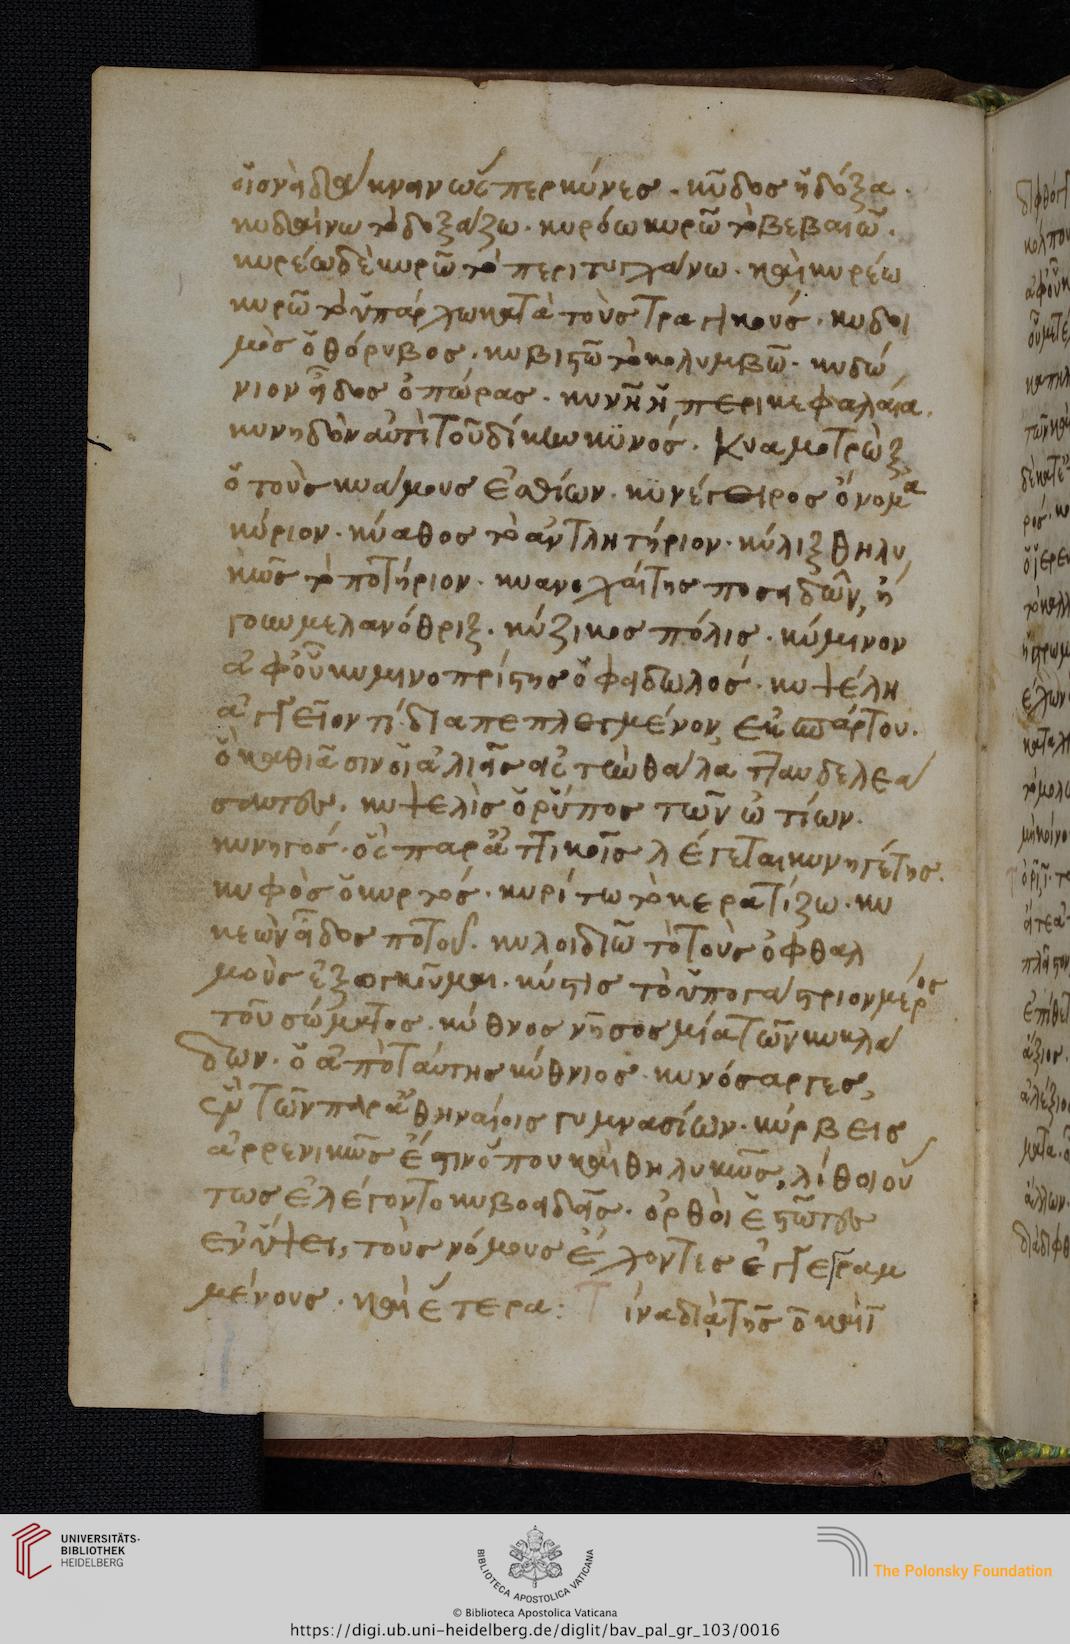 οἷον ἡδιάκνην ὥσπερ κύνες. κῦδος ἡ δόξα.
κυδαίνω τὸ δοξάζω. κυρόω κυρῶ τὸ βεβαιῶ.
κυρέω δὲ κυρῶ τὸ περιτυγχάνω. καὶ κυρέω
κυρῶ τὸ ὑπάρχω κατὰ τοὺς τραγικούς. κυδοι
μὸς ὁ θόρυβος. κυβιστῶ τὸ κολυμβῶ. κυδώ
νιον εἶδος ὀπώρας. κυνῆ ἡ περικεφαλαία.
κυνηδὸν ἀντὶ τοῦ δίκην κυνός. κυαμοτρὼξ
ὁ τοὺς κυάμους ἐσθίων. κυνέγειρος ὄνομα
κύριον. κύαθος τὸ ἀντλητήριον. κύλιξ θηλυ
κῶς τὸ ποτήριον. κυανοχαίτης ποσειδῶν, ἤ
γουν μελανόθριξ. κύζικος πόλις. κύμινον
ἀφ' οὗ κυμινοπρίστης ὁ φειδωλός. κυψέλη
ἀγγεῖόν τι διαπεπλεγμένον, ἐκ σπάρτου.
ὃ καθιᾶσιν οἱ ἁλιεῖς εἰς τὼ θάλατταν δελεά
σαντες. κυψελὶς ὁ ῥύπος τῶν ὠτίων.
κυνηγός. ὃς παρ' ἀττικοῖς λέγεται κυνηγέτης.
κυφὸς ὁ κυρτός. κυρίττω τὸ κερατίζω. κυ
κεὼν εἶδος ποτοῦ. κυλοιδιῶ τὸ τοὺς ὀφθαλ
μοὺς ἐξογκοῦμαι. κύστις τὸ ὑπογάστριον μέρος
τοῦ σώματος. κύθνος νῆσος μία τῶν κυκλά
δων. ὁ ἀπὸ ταύτης κύθνιος. κυνόσαργες,
ἓν τῶν παρ' ἀθηναίοις γυμνασίων. κύρβεις
ἀρρενικῶς ἔστιν ὅπου καὶ θηλυκῶς, λίθοι οὕ
τως ἐλέγοντο κυβοειδεῖς. ὀρθοὶ ἑστῶτες
ἐν ὕψει, τοὺς νόμους ἔχοντες ἐγγεγραμ
μένους. καὶ ἕτερα: τίνα διὰ τῆς οι καὶ ι
UNIVERSITÄTS-
BIBLIOTHEK
HEIDELBERG
BIBLIOTECA APOSTOLICA VATICANA
The Polonsky Foundation
© Biblioteca Apostolica Vaticana
https://digi.ub.uni-heidelberg.de/diglit/bav_pal_gr_103/0016